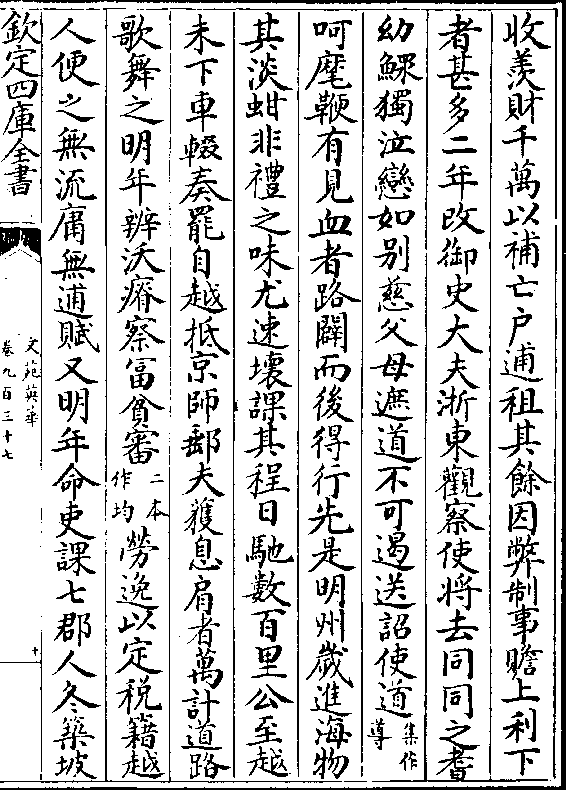 收羡財千萬以補亡户逋租其餘因弊制事贍上利下
者甚多二年改御史大夫浙東觀察使将去同同之耆
幼鰥獨泣戀如别慈父母遮道不可遏送詔使道集作導
呵麾鞭有見血者路闢而後得行先是明州歳進海物
其淡蚶非禮之味尤速壊課其程日馳數百里公至越
未下車輟奏罷自越抵京師郵夫獲息肩者萬計道路
歌舞之明年辨沃瘠察富貧審二本作均勞逸以定税籍越
人便之無流庸無逋賦又明年命吏課七郡人冬築坡
欽定四庫全書
文苑英華
卷九百三十七
十